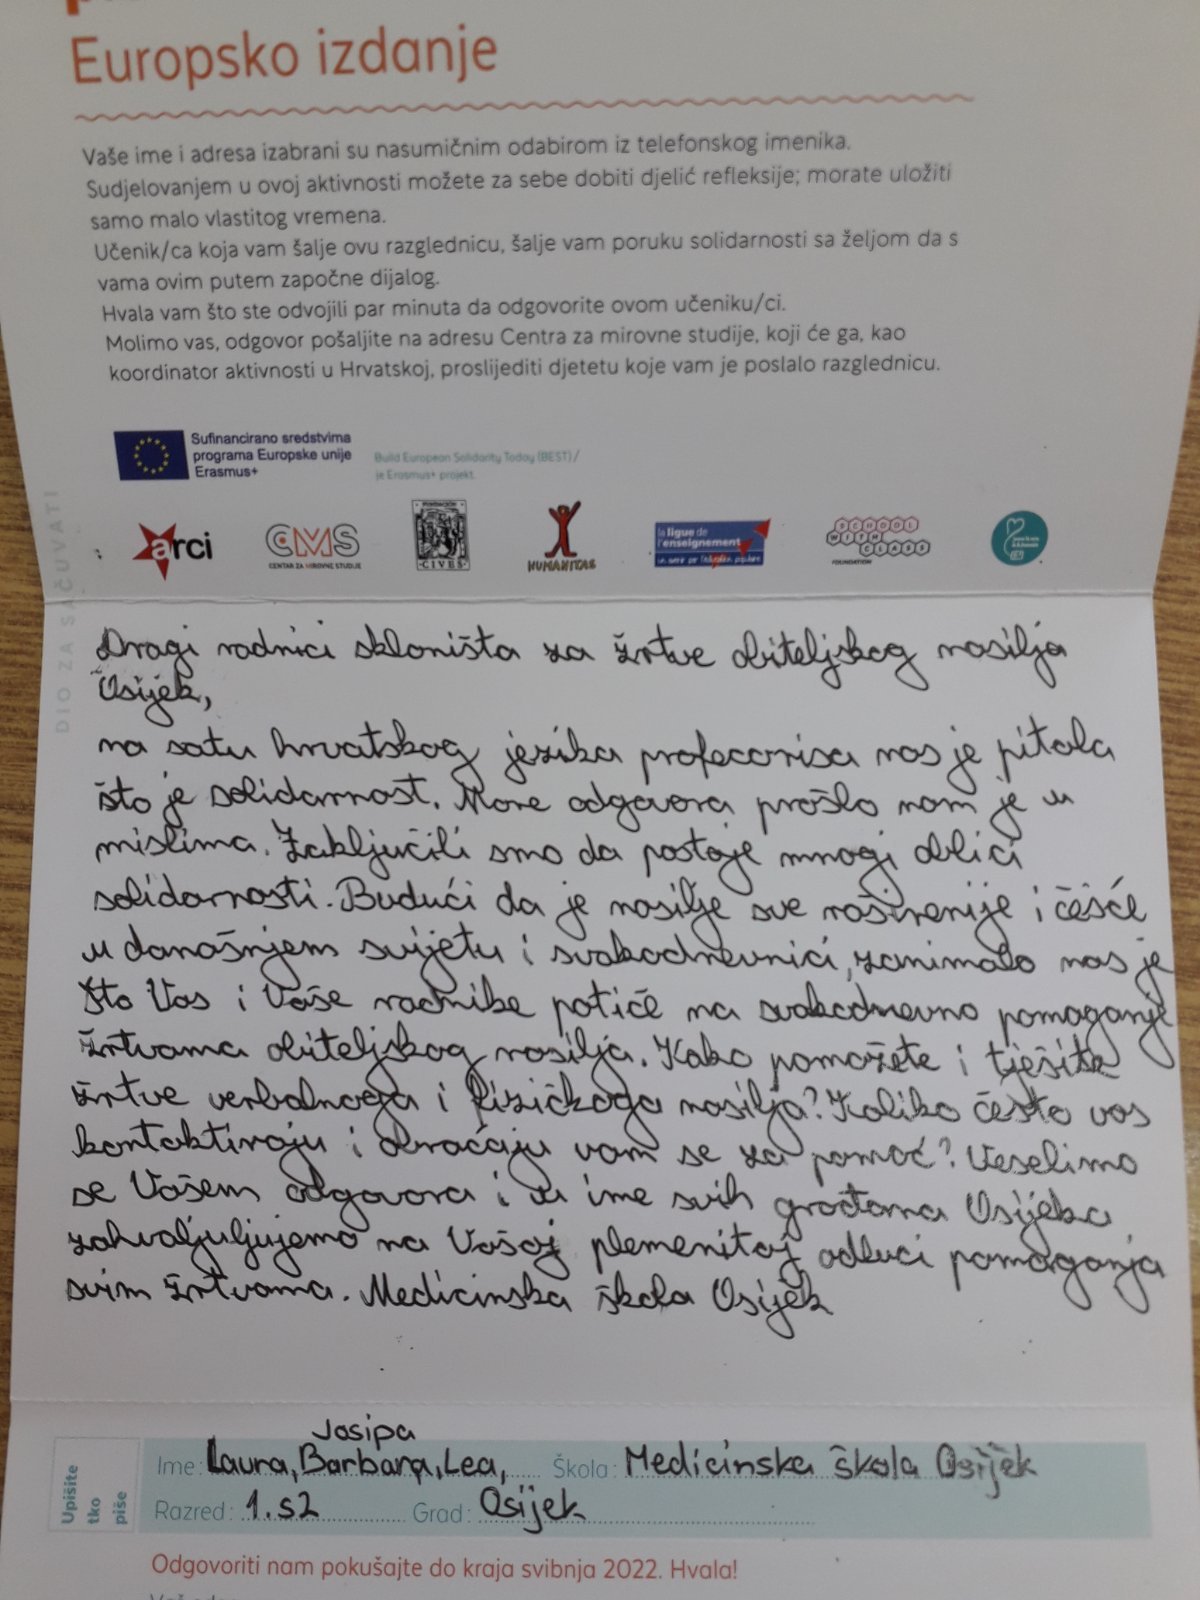 Europsko izdanje
Vaše ime i adresa izabrani su nasumičnim odabirom iz telefonskog imenika.
Sudjelovanjem u ovoj aktivnosti možete za sebe dobiti djelić refleksije; morate uložiti
samo malo vlastitog vremena.
Učenik/ca koja vam šalje ovu razglednicu, šalje vam poruku solidarnosti sa željom da s
vama ovim putem započne dijalog.
Hvala vam što ste odvojili par minuta da odgovorite ovom učeniku/ci.
Molimo vas, odgovor pošaljite na adresu Centra za mirovne studije, koji će ga, kao
koordinator aktivnosti u Hrvatskoj, proslijediti djetetu koje vam je poslalo razglednicu.
Sufinancirano sredstvima
programa Europske unije
Erasmus+
Build European Solidarity Today (BEST) /
je Erasmus+ projekt.
arci
CMS
CENTAR ZA MIROVNE STUDIJE
FUNDACIÓN
CIVES
HUMANITAS
la ligue de
l'enseignement
un avenir par l'éducation populaire
SCHOOL
WITH
CLASS
FOUNDATION
DIO ZA SAČUVATI
Dragi radnici skloništa za žrtve obiteljskog nasilja
Osijek,
na satu hrvatskog jezika profecorica nas je pitala
što je solidarnost. More odgovora prošlo nam je u
mislima. Zaključili smo da postoje mnogi oblici
solidarnosti. Budući da je nasilje sve raširenije i češće
u današnjem svijetu i svakodnevnici, zanimalo nas je
što Vas i Vaše radnike potiče na svakodnevno pomaganje
žrtvama obiteljskog nasilja. Kako pomažete i tješite
žrtve verbalnoga i fizičkoga nasilja? Koliko često vas
kontaktiraju i obraćaju vam se za pomoć? Veselimo
se Vašem odgovora i u ime svih građana Osijeka
zahvaljuljujemo na Vašoj plemenitoj odluci pomaganja
svim žrtvama. Medicinska škola Osijek
Josipa
Upišite
tko
piše
Ime: Laura, Barbara, Lea, Škola: Medicinska škola Osijek
Razred: 1.s2 Grad: Osijek
Odgovoriti nam pokušajte do kraja svibnja 2022. Hvala!